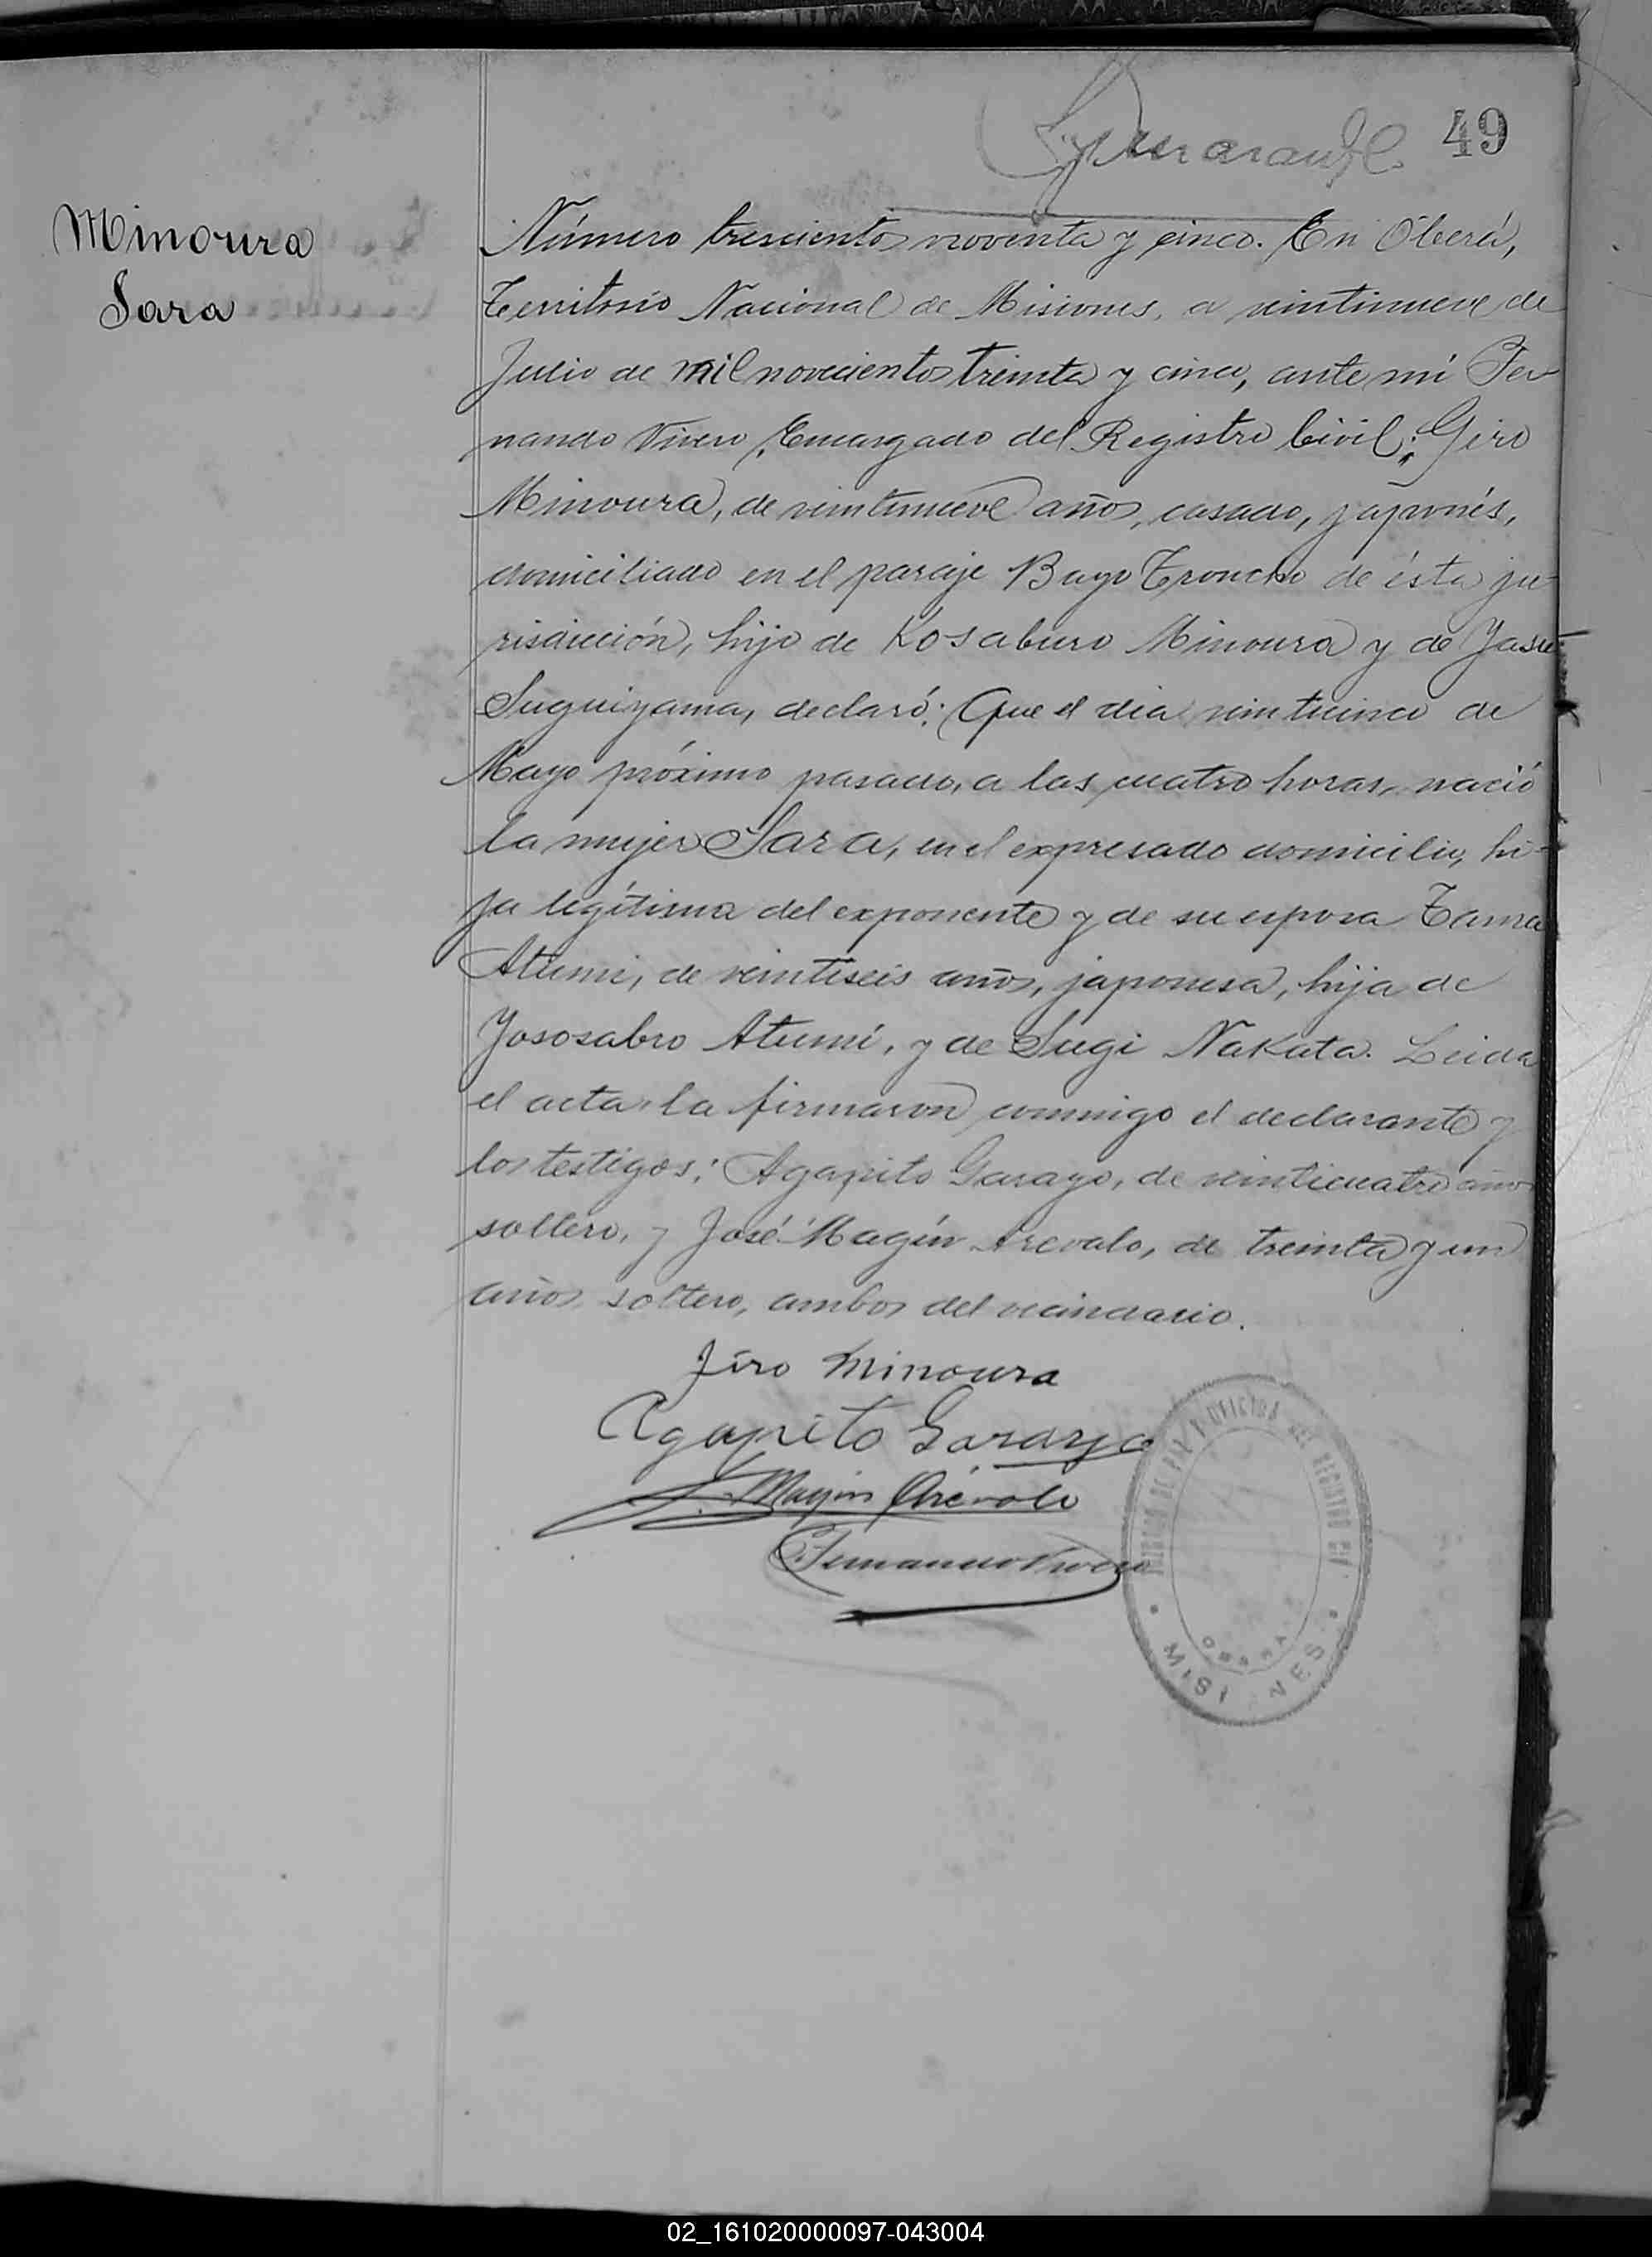 49
Minoura
Sara
Número trescientos noventa y cinco. En Oberá,
Territorio Nacional de Misiones, a veintinueve de
Julio de mil novecientos treinta y cinco, ante mí Fer-
nando Vivero, Encargado del Registro Civil; Giro
Minoura, de veintinueve años, casado, japonés,
domiciliado en el paraje Bayo Troncho de ésta ju-
risdicción, hijo de Kosaburo Minoura y de Jasue
Suguiyama, declaró: Que el dia veinticinco de
Mayo próximo pasado, a las cuatro horas, nació
la mujer Sara, en el expresado domicilio, hi-
ja legítima del exponente y de su esposa Tama
Atumi, de veintiseis años, japonesa, hija de
Yososabro Atumi, y de Sugi Nakata. Leida
el acta la firmaron conmigo el declarante y
los testigos: Agapito Garayo, de veinticuatro años
soltero, y José Magín Arevalo, de treinta y un
años soltero, ambos del vecindario.
Jiro Minoura
Agapito Garayo
J. Magin Arévalo
Fernando Vivero
JUZGADO DE PAZ Y OFICINA DEL REGISTRO CIVIL
OBERA
MISIONES
02_161020000097-043004